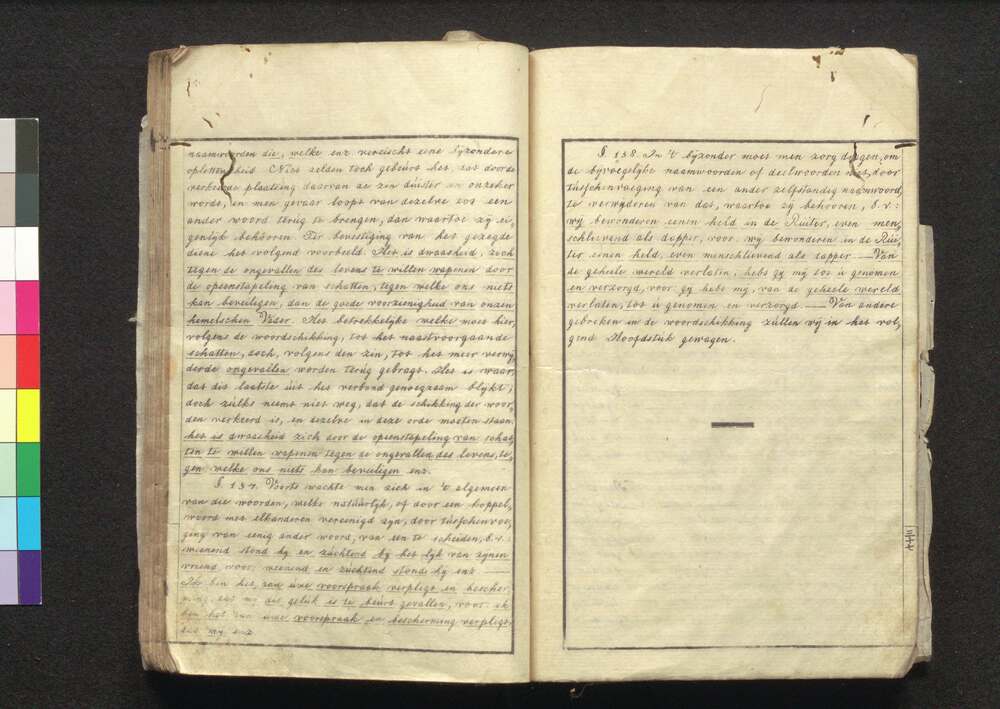 naamwoorden die, welke enz vereischt eene byzondere
oplettenheid Niet zelden toch gebeurt het, dat door de
verkeerde plaatsing daarvan de zin duister en onzeker
wordt, en men gevaar loopt van dezelve tot een
ander woord terug te brengen, dan waartoe zy ei„
genlyk behooren. Ter bevestiging van het gezegde
diene het volgend voorbeeld. Het is dwaasheid, zich
tegen de ongevallen des levens te willen wapenen door
de opeenstapeling van schatten, tegen welke ons niets
kan beveiligen, dan de goede voorzienigheid van onzen
hemelschen Vader. Het betrekkelyke welke moet hier,
volgens de woordschikking, tot het naastvoorgaande
schatten, doch, volgens den zin, tot het meer verwy„
derde ongevallen worden terug gebragt. Het is waar,
dat dit laatste uit het verband genoegzaam blykt;
doch zulks neemt niet weg, dat de schikking der woor„
den verkeerd is, en dezelve in deze orde moeten staan.
het is dwaasheid zich door de opeenstapeling van schat„
ten te willen wapenen tegen de ongevallen des levens, te„
gen welke ons niets kan beveiligen enz.
§ 137. Voorts wachte men zich in 't algemeen
van die woorden, welke natuurlyk, of door een koppel„
woord met elkanderen vereenigd zyn, door tusschenvoe„
ging van eenig ander woord, van een te scheiden, b.v:
weenend stond hy en zuchtend by het lyk van zynen
vriend, voor, weenend en zuchtend stond hy enz ——
Ik ben het, aan uwe voorspraak verpligt en bescher
ming, dat my dit geluk is te beurt gevallen, voor ik
ben het aan uwe voorspraak en bescherming verpligt,
dat my enz
§ 138. In 't byzonder moet men zorg dragen, om
de byvoegelyke naamwoorden of deelwoorden niet, door
tusschenvoeging van een ander zelfstandig naamwoord,
te verwyderen van dat, waartoe zy behooren, b.v:
wy bewonderen eenen held in de Ruiter, even men„
schlievend als dapper, voor wy bewonderen in de Rui„
ter eenen held, even menschlievend als dapper —— Van
de geheele wereld verlaten, hebt gy my tot u genomen
en verzorgd, voor gy hebt my, van de geheele wereld
verlaten, tot u genomen en verzorgd —— Van andere
gebreken in de woordschikking zullen wy in het vol„
gend Hoofdstuk gewagen.